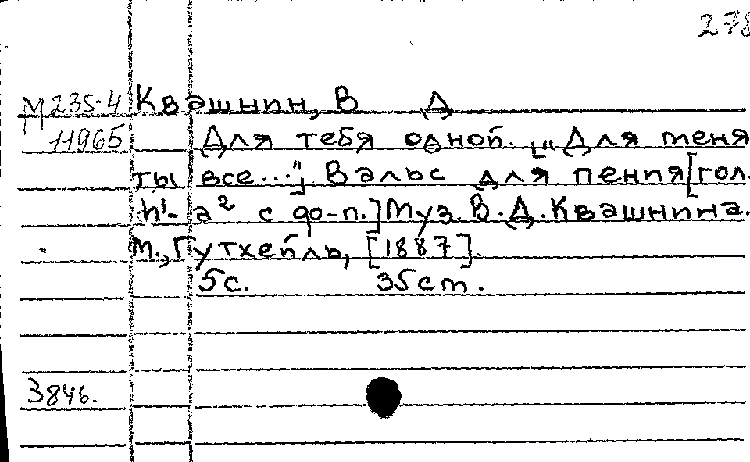 278
М 235-4 Квашнин, В Д
11965 Для тебя одной. [„Для меня
ты все..."] Вальс для пения [гол.
h¹- a² с фо-п.] Муз. В.Д. Квашнина.
М., Гутхейль, [1887].
5с. 35см.
3846.